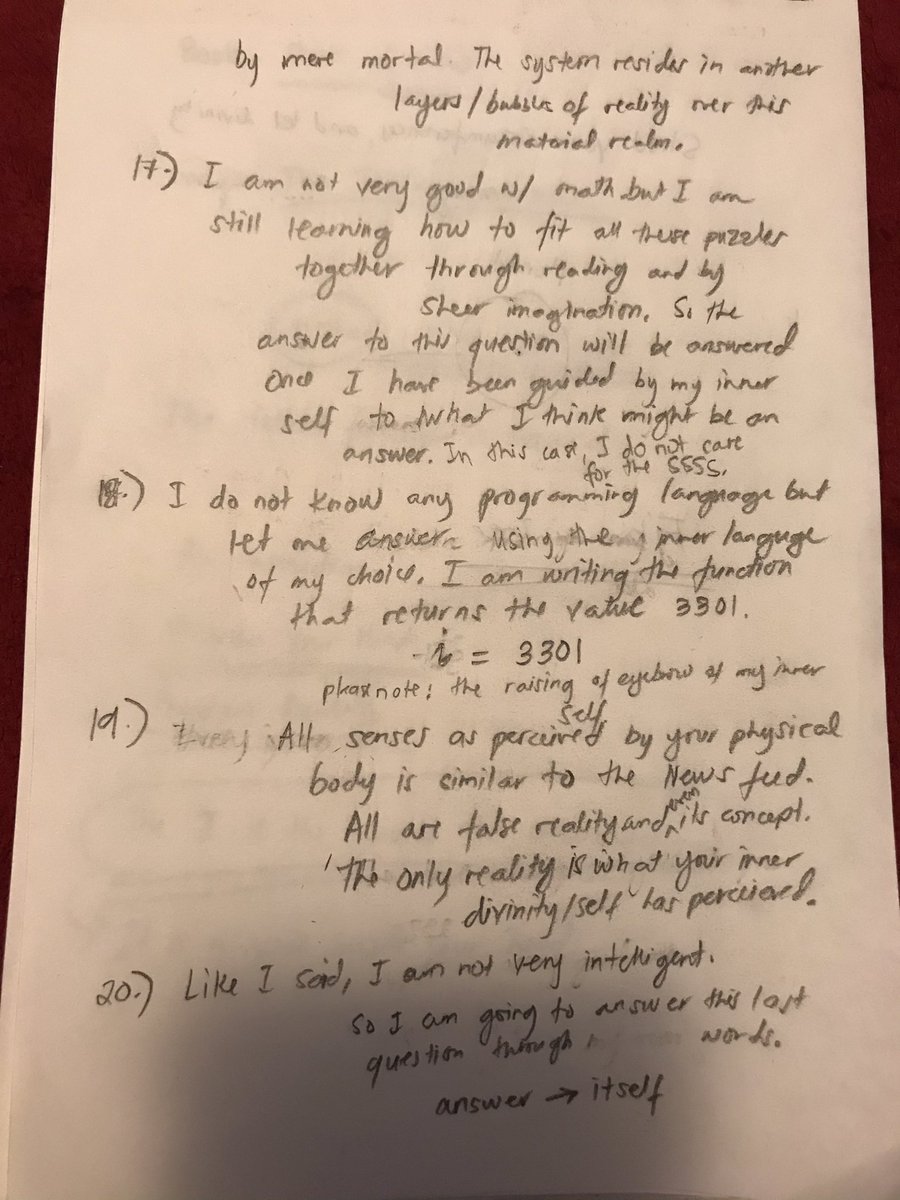 by mere mortal. The system resides in another
layers/bubble of reality over this
material realm.
17.) I am not very good w/ math but I am
still learning how to fit all these puzzles
together through reading and by
sheer imagination. So the
answer to this question will be answered
once I have been guided by my inner
self to what I think might be an
answer. In this case, I do not care
for the SSSS.
18.) I do not know any programming language but
let me answer using the inner language
of my choice. I am writing the function
that returns the value 3301.
i = 3301
please note: the raising of eyebrow of my inner
self.
19.) All senses as perceived by your physical
body is similar to the News feed.
All are false reality and even its concept.
The only reality is what your inner
divinity/self has perceived.
20.) Like I said, I am not very intelligent.
so I am going to answer this last
question through words.
answer → itself